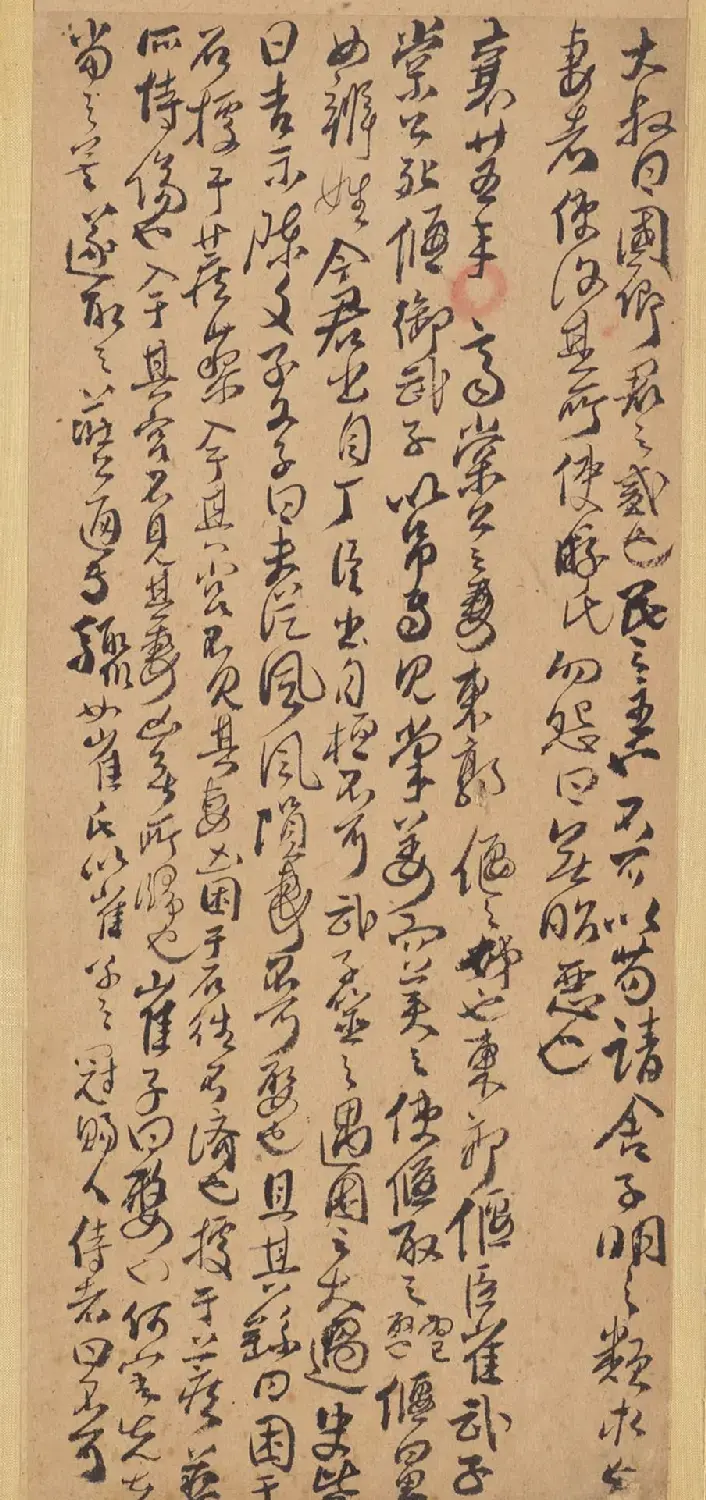 大叔曰國卿君之貳也民之主也不可以苟請舍子明之類求亡
妻者使復其所使游氏勿怨曰無昭惡也
襄廿五年齊棠公之妻東郭偃之姊也東郭偃臣崔武子
棠公死偃御武子以吊焉見棠姜而美之使偃取之偃曰男
女辨姓今君出自丁臣出自桓不可武子筮之遇困之大過史皆
曰吉示陳文子文子曰夫從風風隕妻不可娶也且其繇曰困于
石據于蒺藜入于其宮不見其妻凶困于石往不濟也據于蒺藜
所恃傷也入于其宮不見其妻凶無所歸也崔子曰嫠也何害先夫
當之矣遂取之莊公通焉驟如崔氏以崔子之冠賜人侍者曰不可